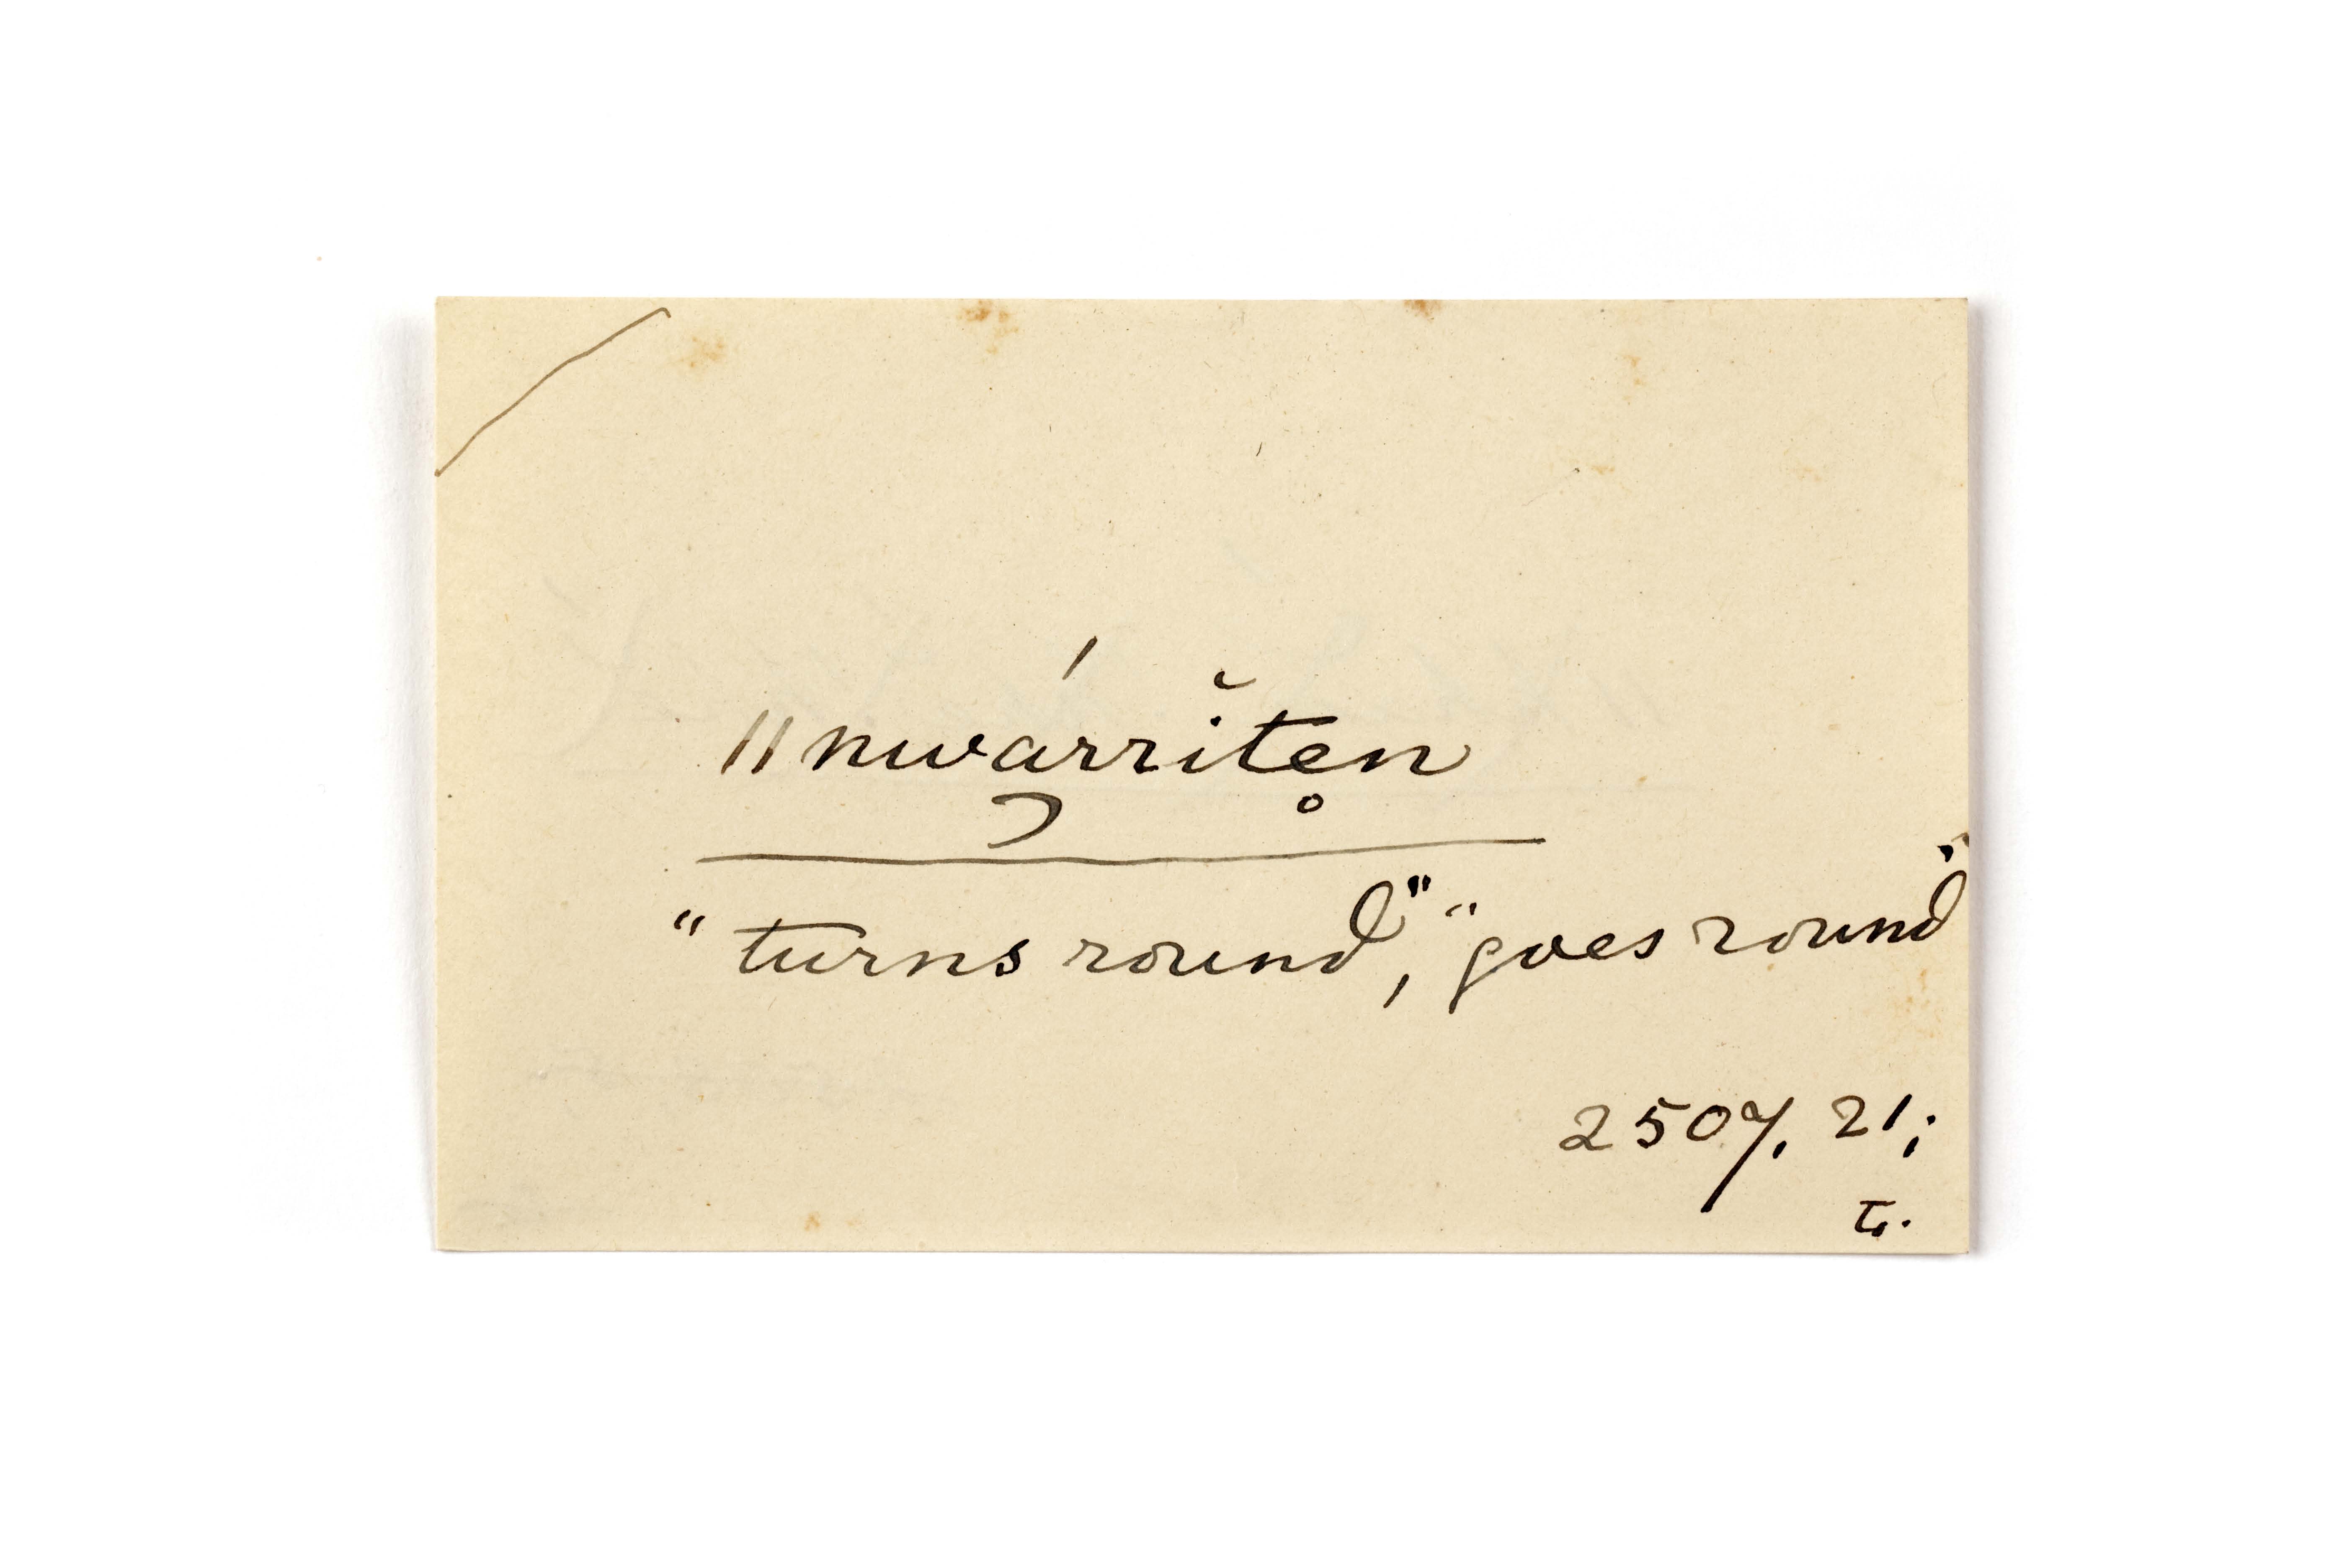 ǁnwárrĭte̥n
"turns round," "goes round"
2507, 21;
t.